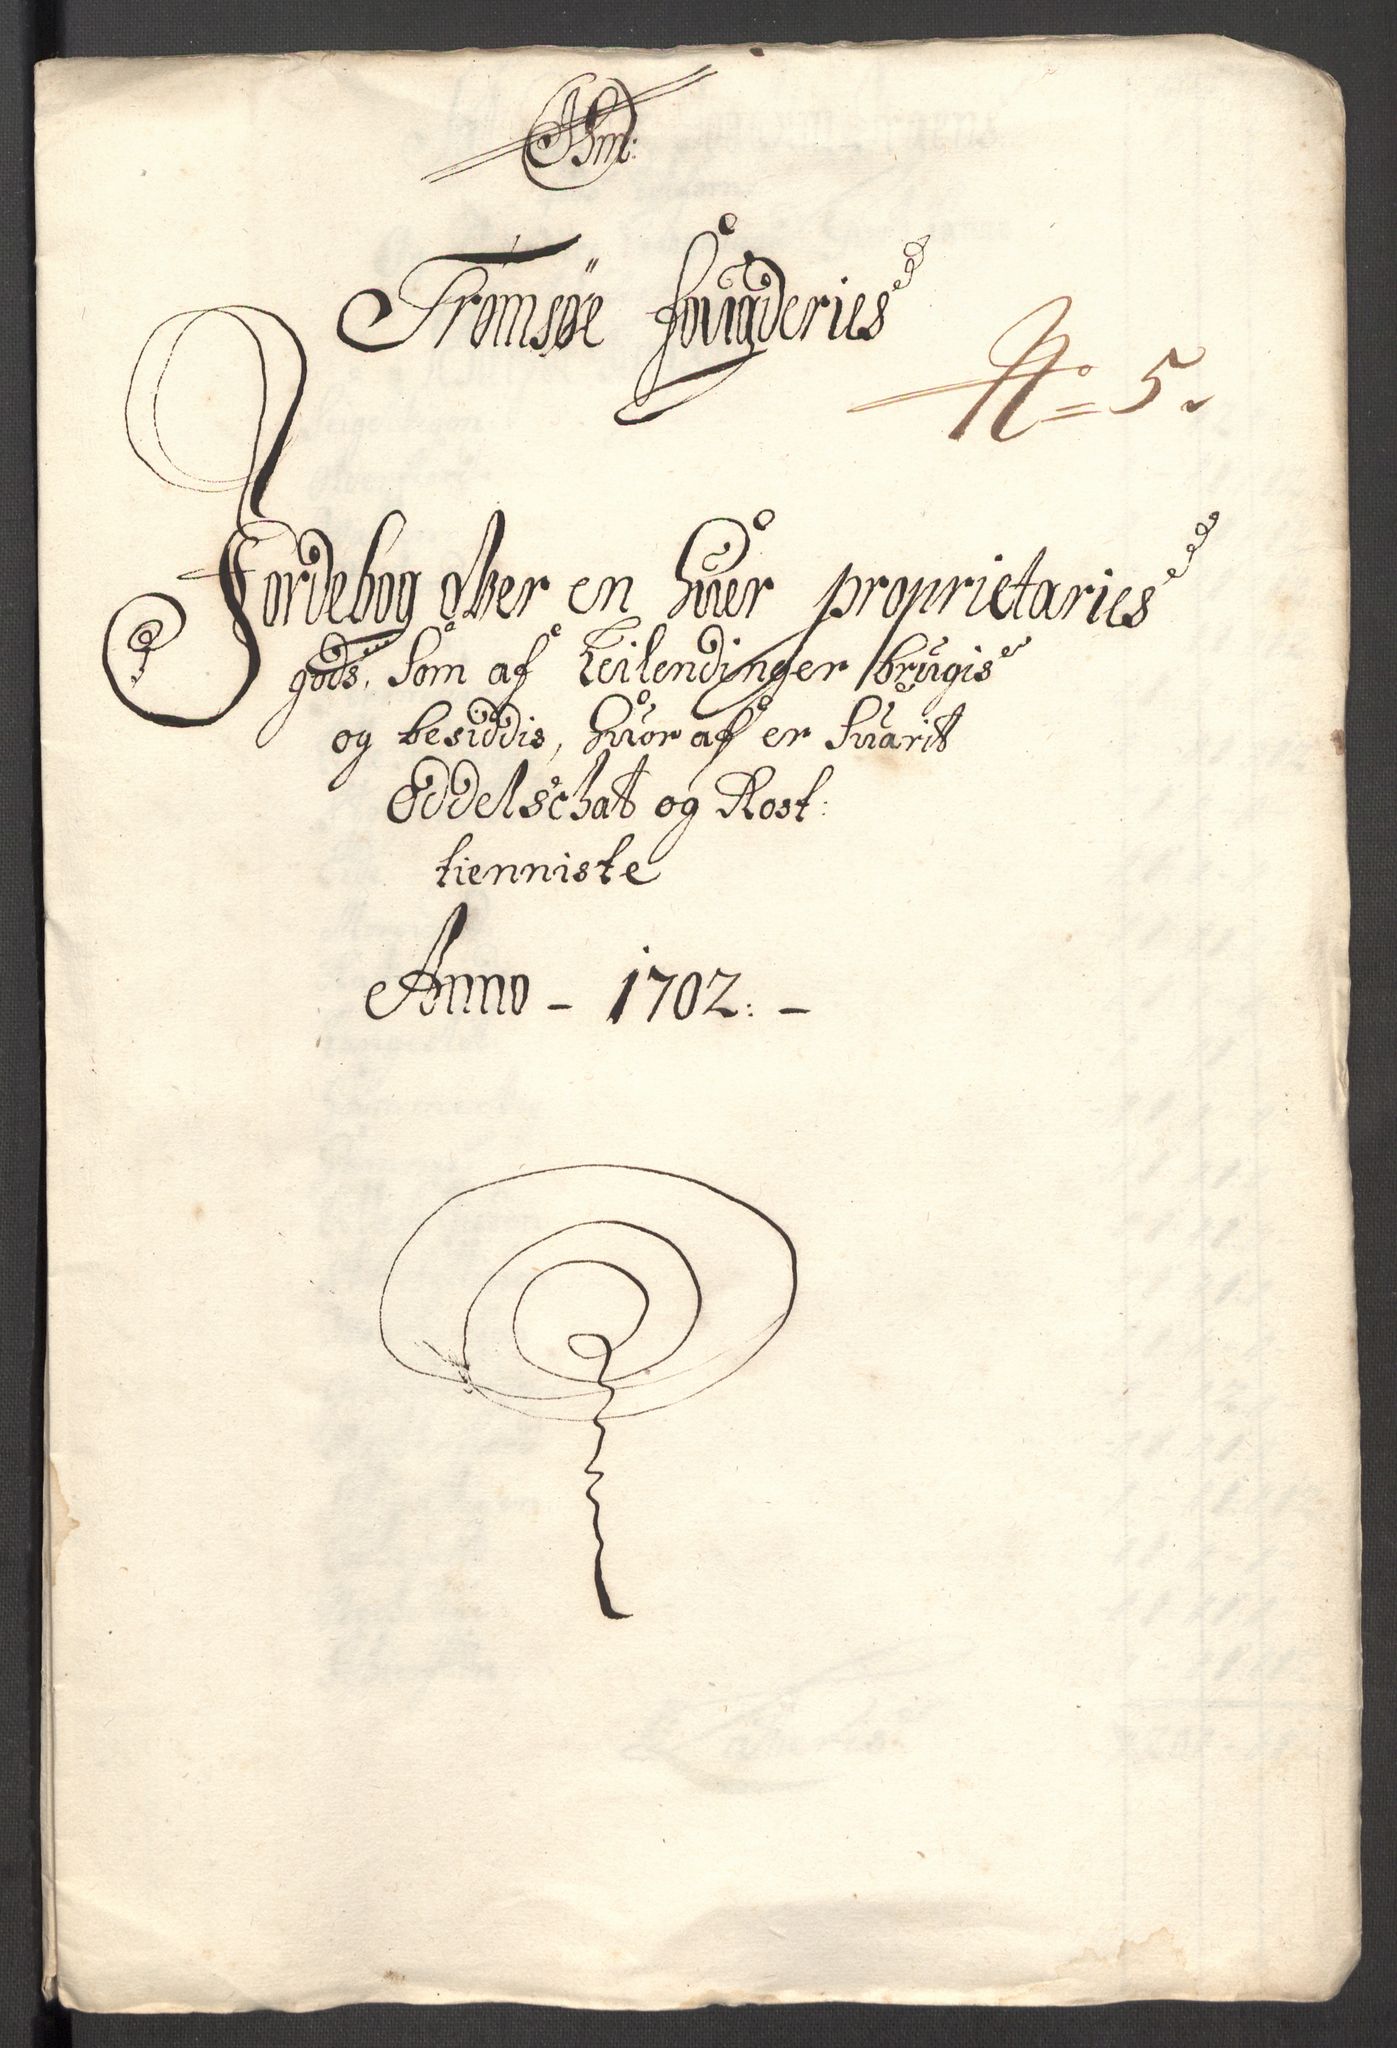 Tromsøe fougderies
No= 5.
Jordebog ofver en huer proprietaries
gods, som af Leilendinger brugis
og besiddis, huor af er suarit
Oddelschat og Rost:
tienniste
Anno - 1702: -